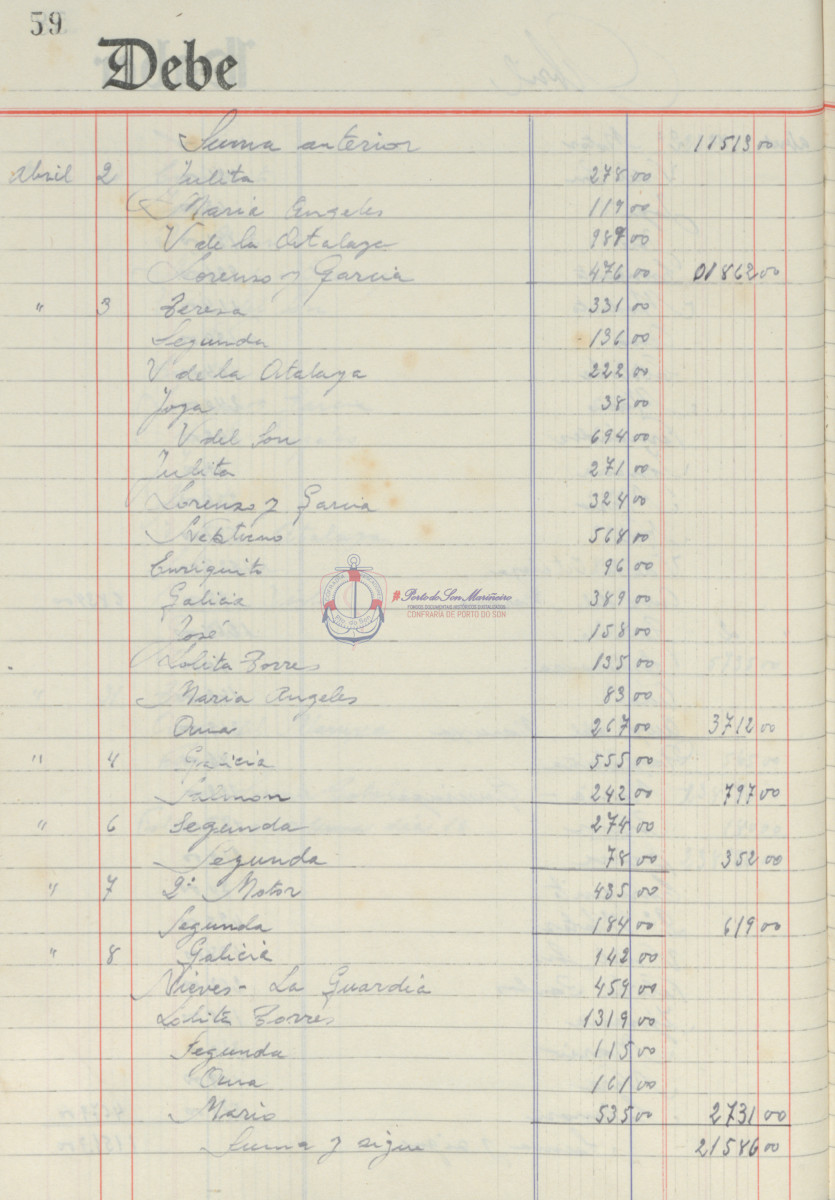 59
Debe
Suma anterior 11513 00
Abril 2 Julita 278 00
Maria Angeles 119 00
V de la Atalaya 989 00
Lorenzo y Garcia 476 00 01862 00
" 3 Teresa 331 00
Segunda 136 00
V de la Atalaya 222 00
Joya 38 00
V del Son 694 00
Julita 271 00
Lorenzo y Garcia 324 00
Neptuno 568 00
Enriquito 96 00
Galicia 389 00
José 158 00
Lolita Torres 135 00
Maria Angeles 83 00
Oma 267 00 3712 00
" 4 Galicia 555 00
Salmon 242 00 797 00
" 6 Segunda 274 00
Segunda 78 00 352 00
" 7 2º Motor 435 00
Segunda 184 00 619 00
" 8 Galicia 142 00
Nieves - La Guardia 459 00
Lolita Torres 1319 00
Segunda 115 00
Oma 161 00
Mario 535 00 2731 00
Suma y sigue 21586 00
Porto do Son Mariñeiro
FONDOS DOCUMENTAIS HISTÓRICOS DIXITALIZADOS
CONFRARÍA DE PORTO DO SON